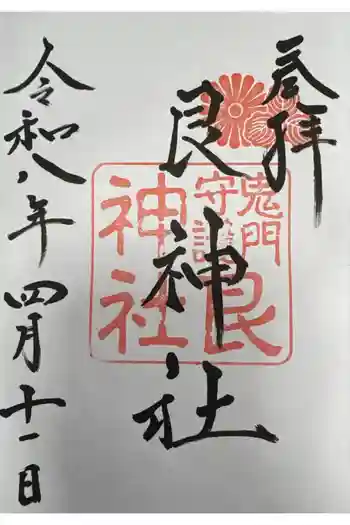 参拝
艮神社
鬼門
守護
艮
神社
令和八年四月十一日